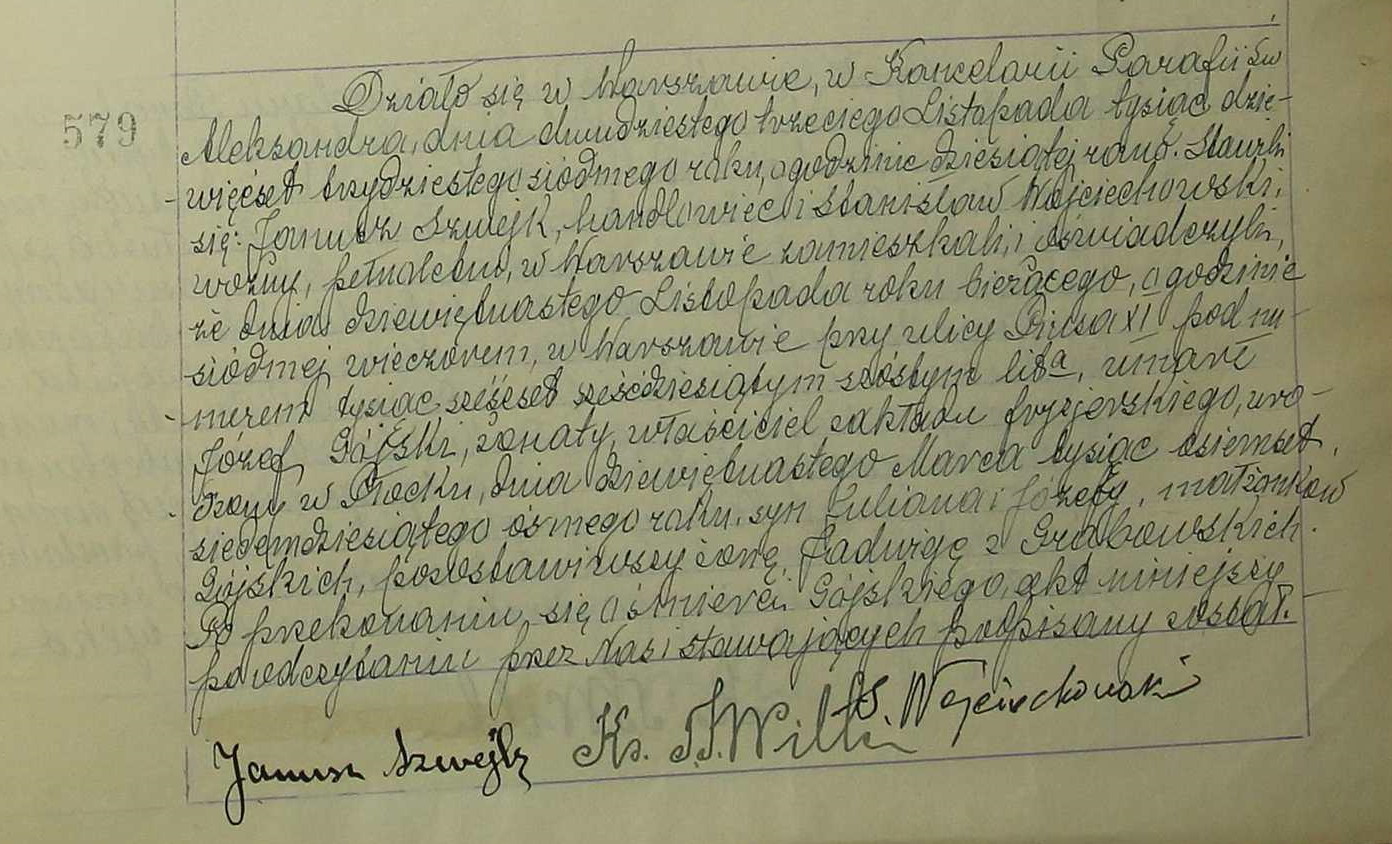 579
Działo się w Warszawie, w Kancelarii Parafii św
Aleksandra, dnia dwudziestego trzeciego Listopada tysiąc dzie-
więćset trzydziestego siódmego roku, o godzinie dziesiątej rano. Stawili
się: Janusz Szwejk, handlowiec i Stanisław Wojciechowski,
woźny, pełnoletni, w Warszawie zamieszkali, i oświadczyli,
że dnia dziewiętnastego Listopada roku bieżącego, o godzinie
siódmej wieczorem, w Warszawie przy ulicy Piusa XI pod nu-
merem tysiąc sześćset sześćdziesiątym szóstym lit a, umarł
Józef Gójski, żonaty, właściciel zakładu fryzjerskiego, uro-
dzony w Płocku, dnia dziewiętnastego Marca tysiąc osiemset
siedemdziesiątego ósmego roku, syn Juliana i Józefy, małżonków
Gójskich, pozostawiwszy żonę Jadwigę z Grabowskich.
Po przekonaniu się o śmierci Gójskiego, akt niniejszy
po odczytaniu przez Nas i stawających podpisany został.
Janusz Szwejk Ks. S. Wojciechowski